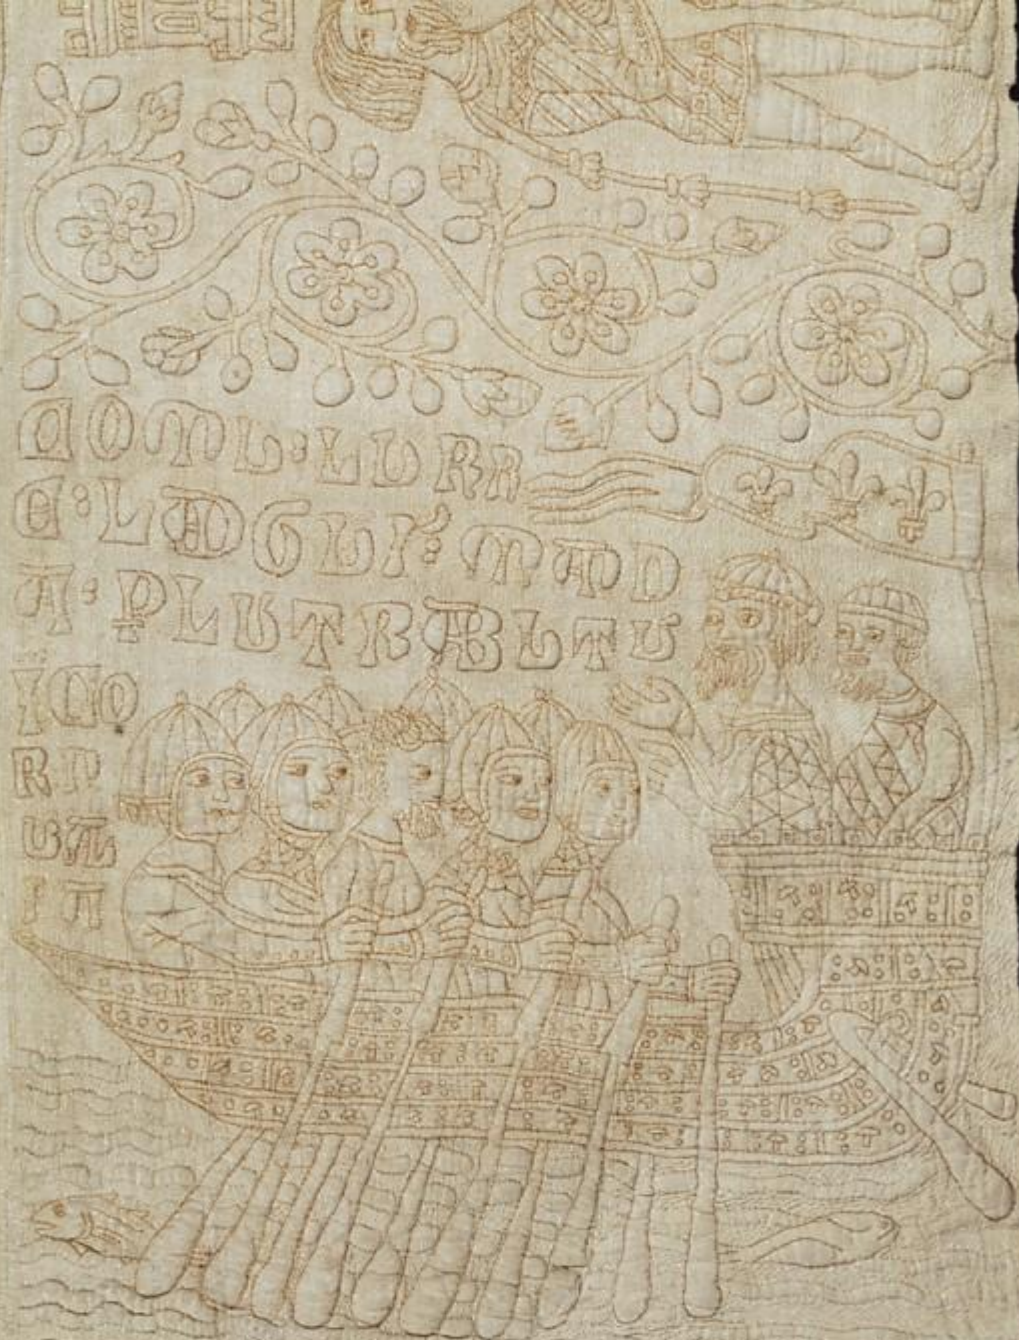 COMU : LU RR
E : LAGUIS : MAD
A : P LU TRABUTU
ĪCO
RN
UAL
IA